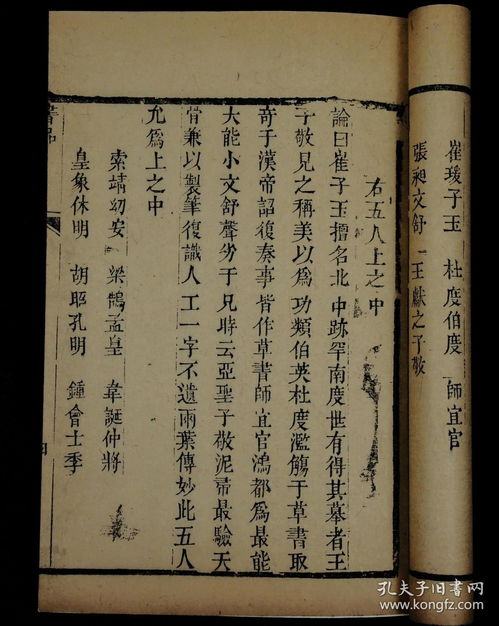 崔瑗子玉　杜度伯度　師宜官
張昶文舒　王獻之子敬
右五人上之中
論曰崔子玉擅名北中跡罕南度世有得其摹者王
子敬見之稱美以為功類伯英杜度濫觴于草書取
奇于漢帝詔復奏事皆作草書師宜官鴻都為最能
大能小文舒聲劣于兄時云亞聖子敬泥帚最驗天
骨兼以製筆復識人工一字不遺兩葉傳妙此五人
允為上之中
索靖幼安　梁鵠孟皇　韋誕仲將
皇象休明　胡昭孔明　鍾會士季
書品
四
孔夫子旧书网
www.kongfz.com